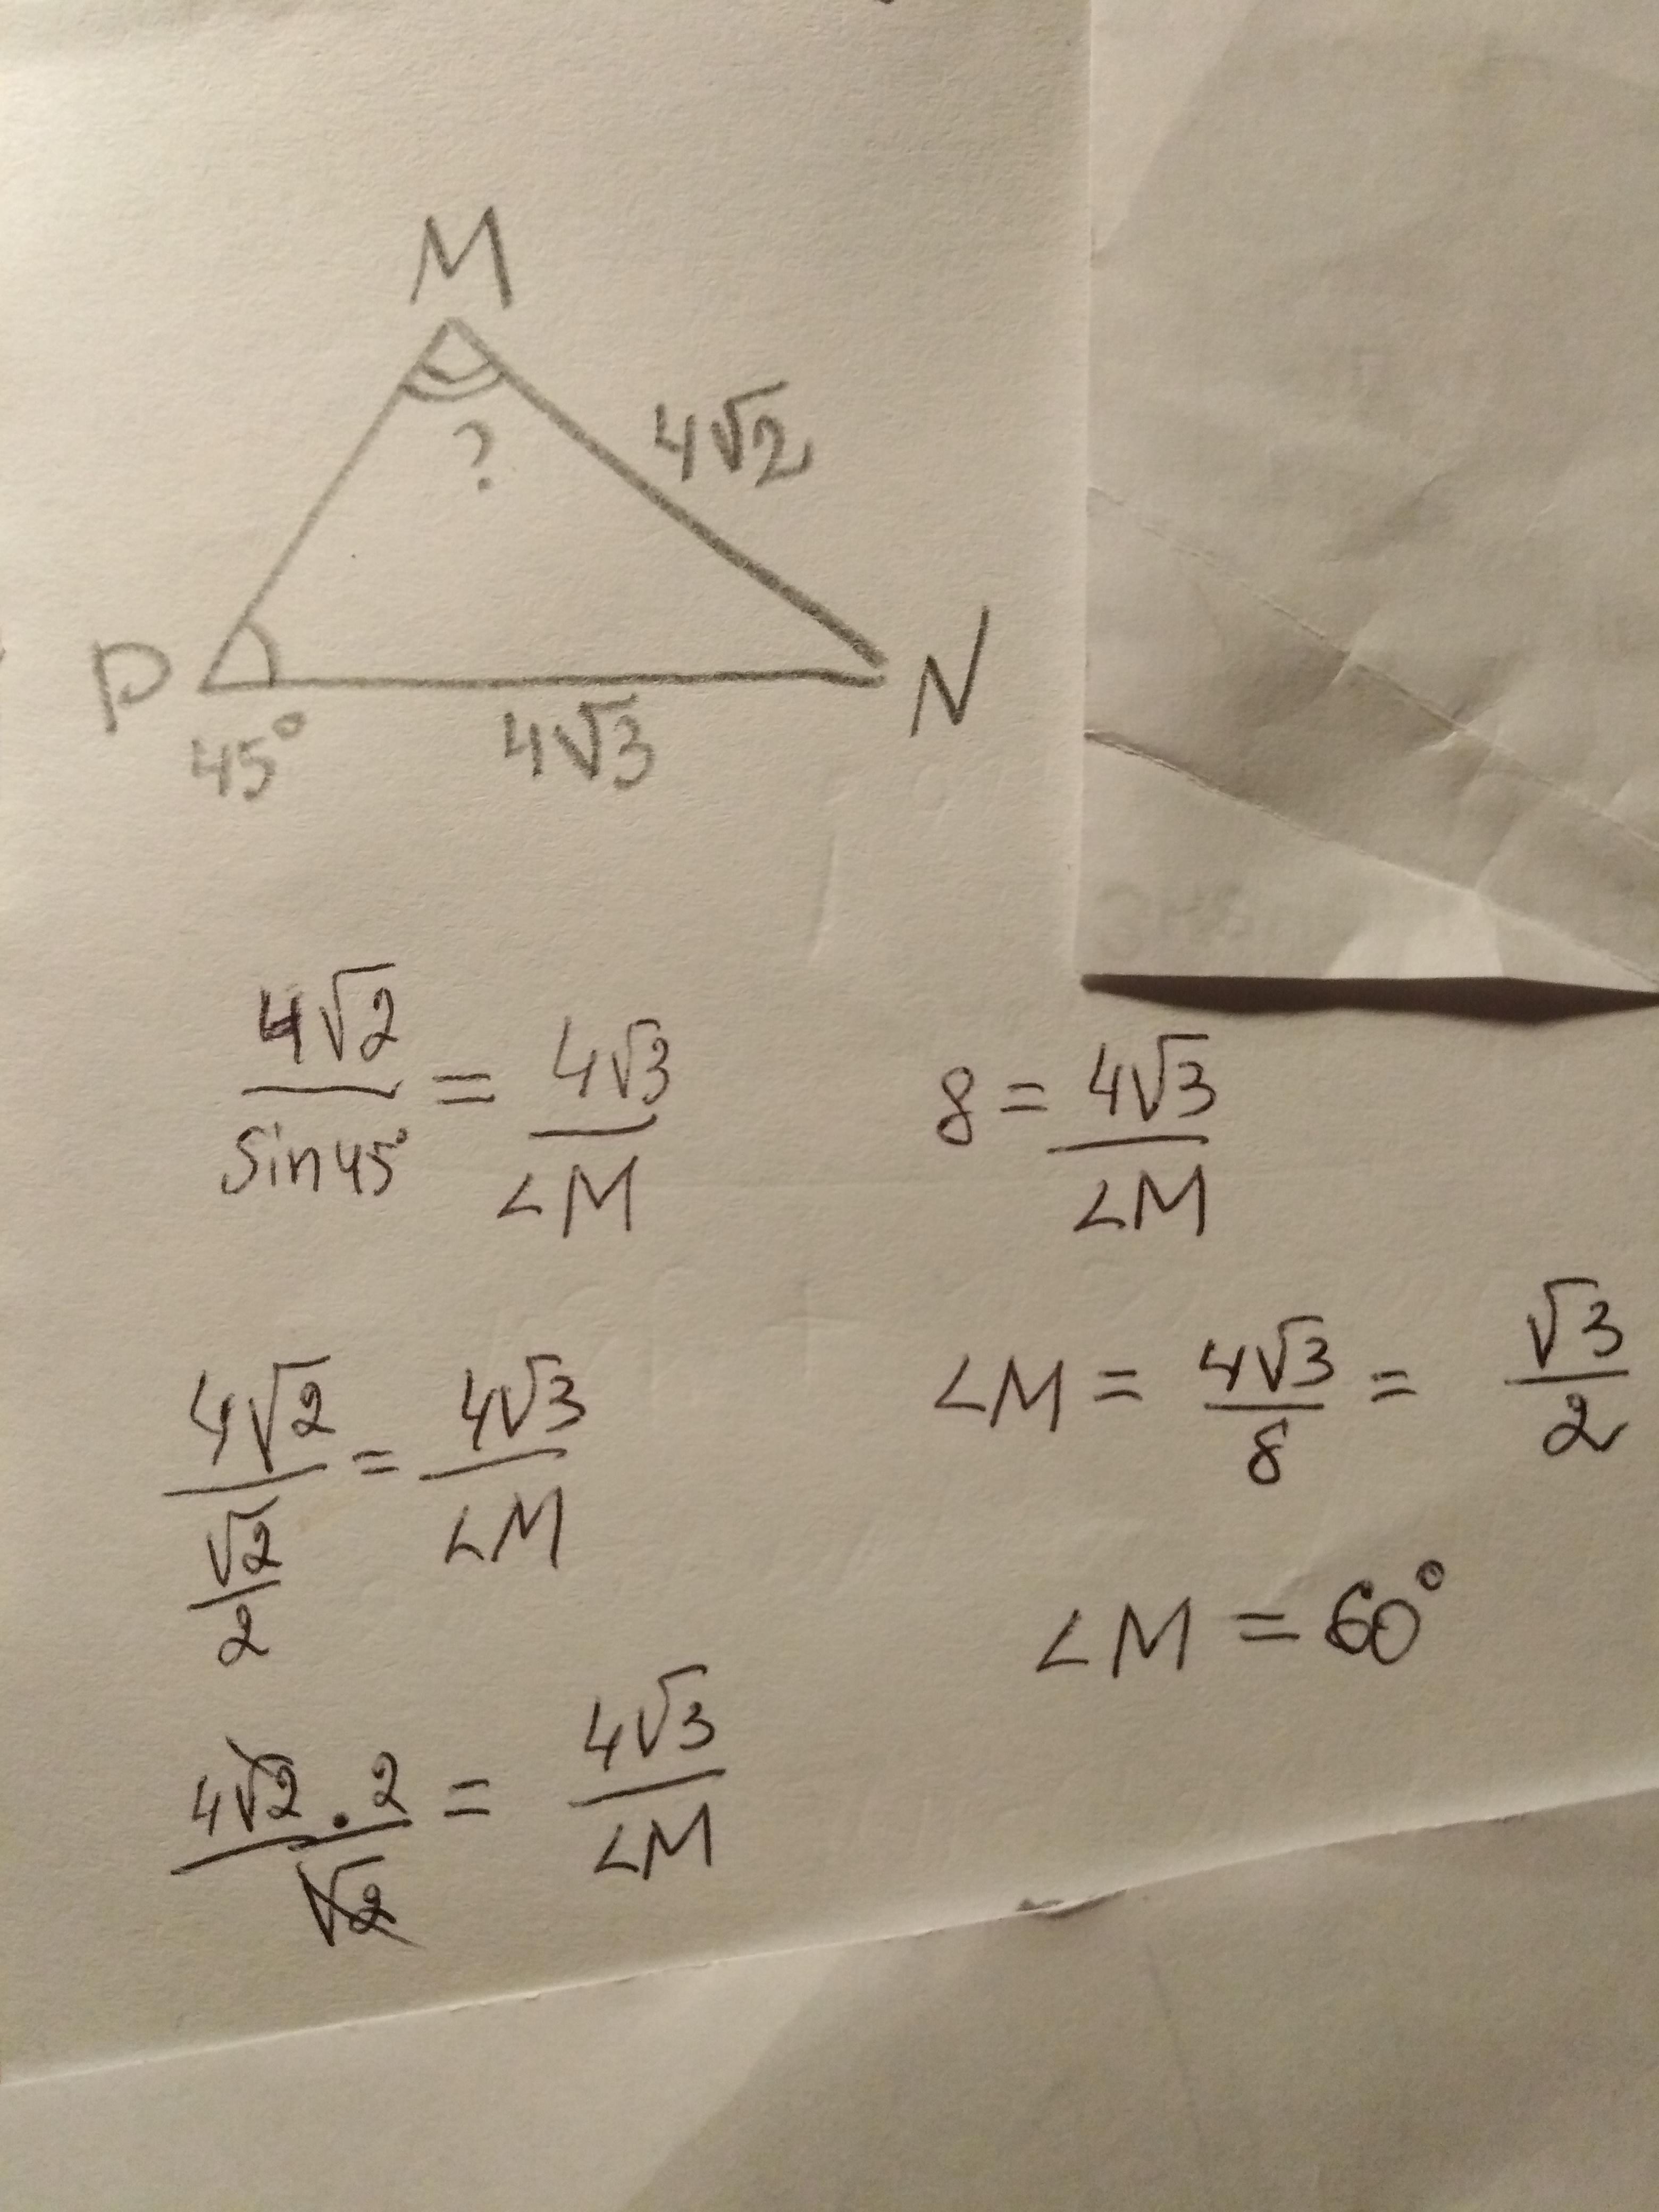 M
4√2
?
P
N
45°
4√3
4√2/sin45° = 4√3/∠M
4√2/(√2/2) = 4√3/∠M
4√2 · 2/√2 = 4√3/∠M
8 = 4√3/∠M
∠M = 4√3/8 = √3/2
∠M = 60°